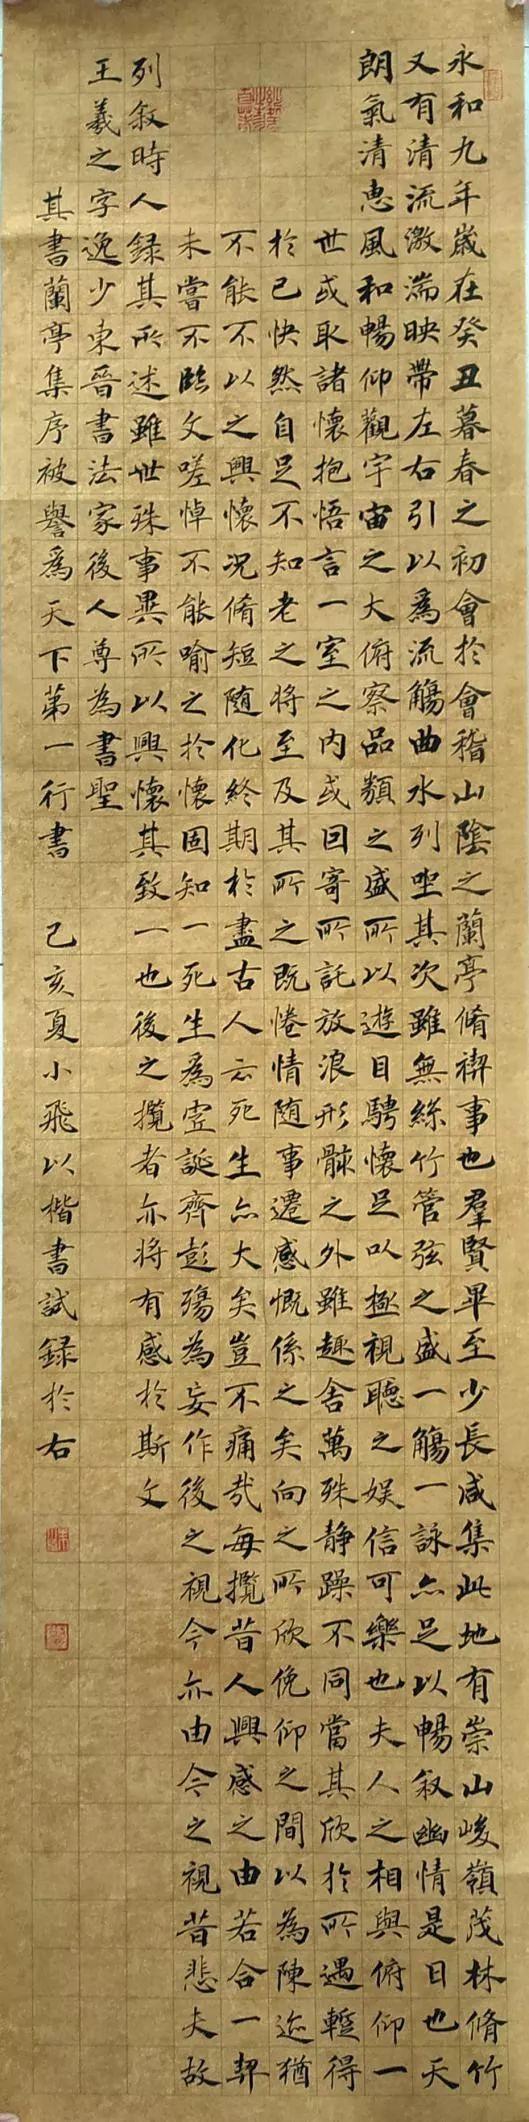 永和九年歲在癸丑暮春之初會於會稽山陰之蘭亭脩禊事也羣賢畢至少長咸集此地有崇山峻嶺茂林脩竹
又有清流激湍映帶左右引以爲流觴曲水列坐其次雖無絲竹管弦之盛一觴一詠亦足以暢叙幽情是日也天
朗氣清惠風和暢仰觀宇宙之大俯察品類之盛所以遊目騁懷足以極視聽之娱信可樂也夫人之相與俯仰一
世或取諸懷抱悟言一室之内或因寄所託放浪形骸之外雖趣舍萬殊静躁不同當其欣於所遇蹔得
於己快然自足不知老之将至及其所之既惓情随事遷感慨係之矣向之所欣俛仰之間以為陳迹猶
不能不以之興懷況脩短随化終期於盡古人云死生亦大矣豈不痛哉每攬昔人興感之由若合一契
未嘗不臨文嗟悼不能喻之於懷固知一死生爲虛誕齊彭殤為妄作後之視今亦由今之視昔悲夫故
列叙時人録其所述雖世殊事異所以興懷其致一也後之攬者亦将有感於斯文
王羲之字逸少東晉書法家後人尊為書聖
其書蘭亭集序被譽爲天下第一行書 己亥夏小飛以楷書試録於右